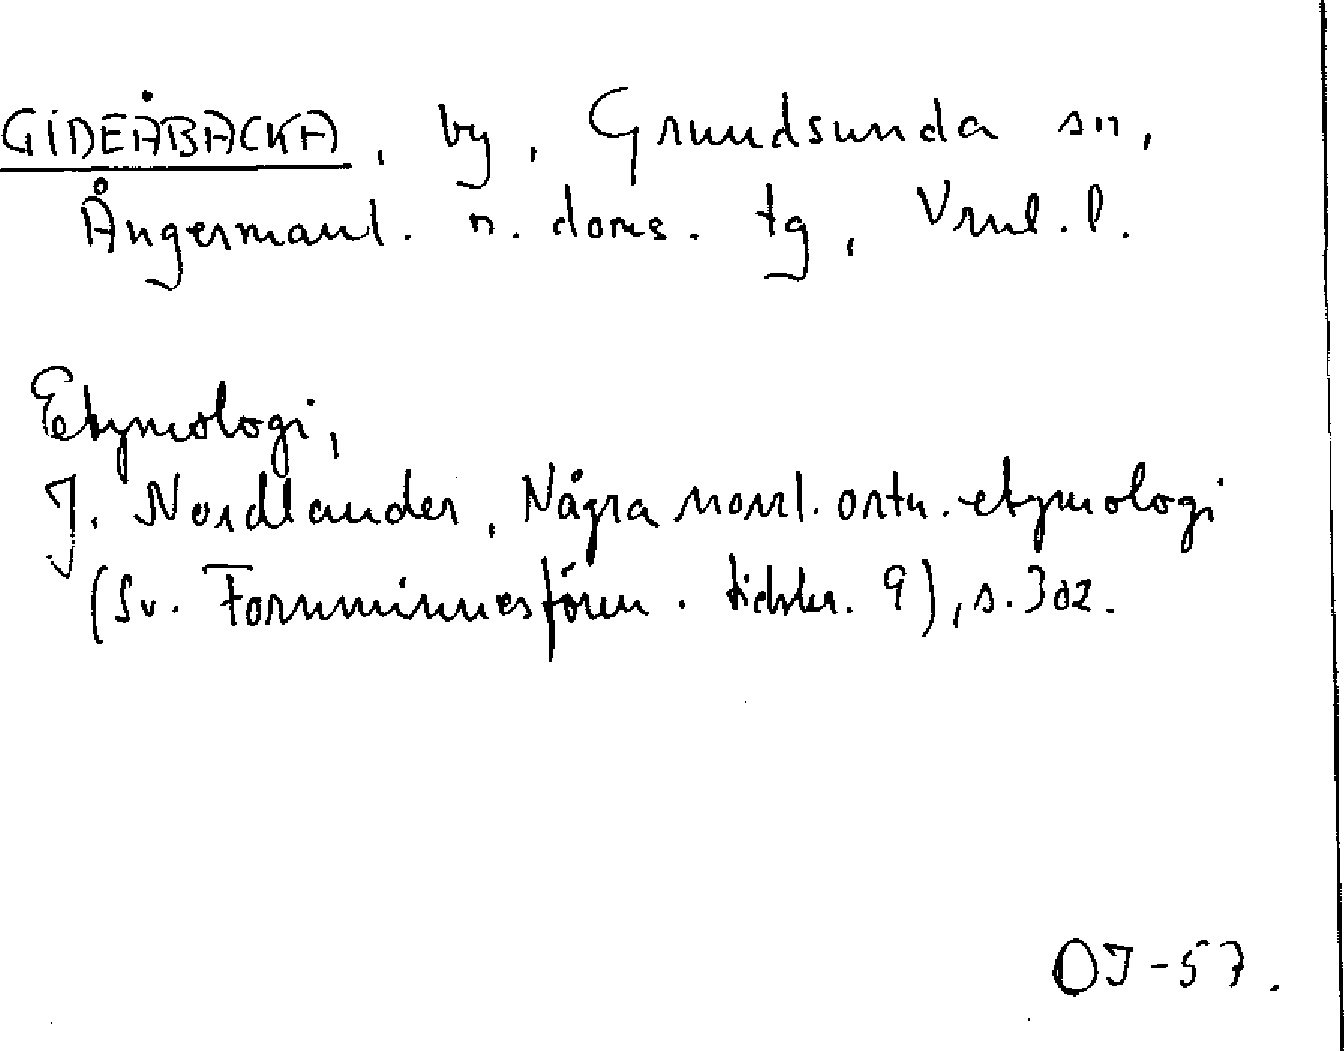 GIDEÅBACKA, by, Grundsunda sn,
Ångermanl. n. doms. tg, Vrnl. l.
Etymologi,
J. Nordlander, Några norrl. ortn. etymologi
(Sv. Fornminnesfören. tidskr. 9), s. 302.
OJ-57.